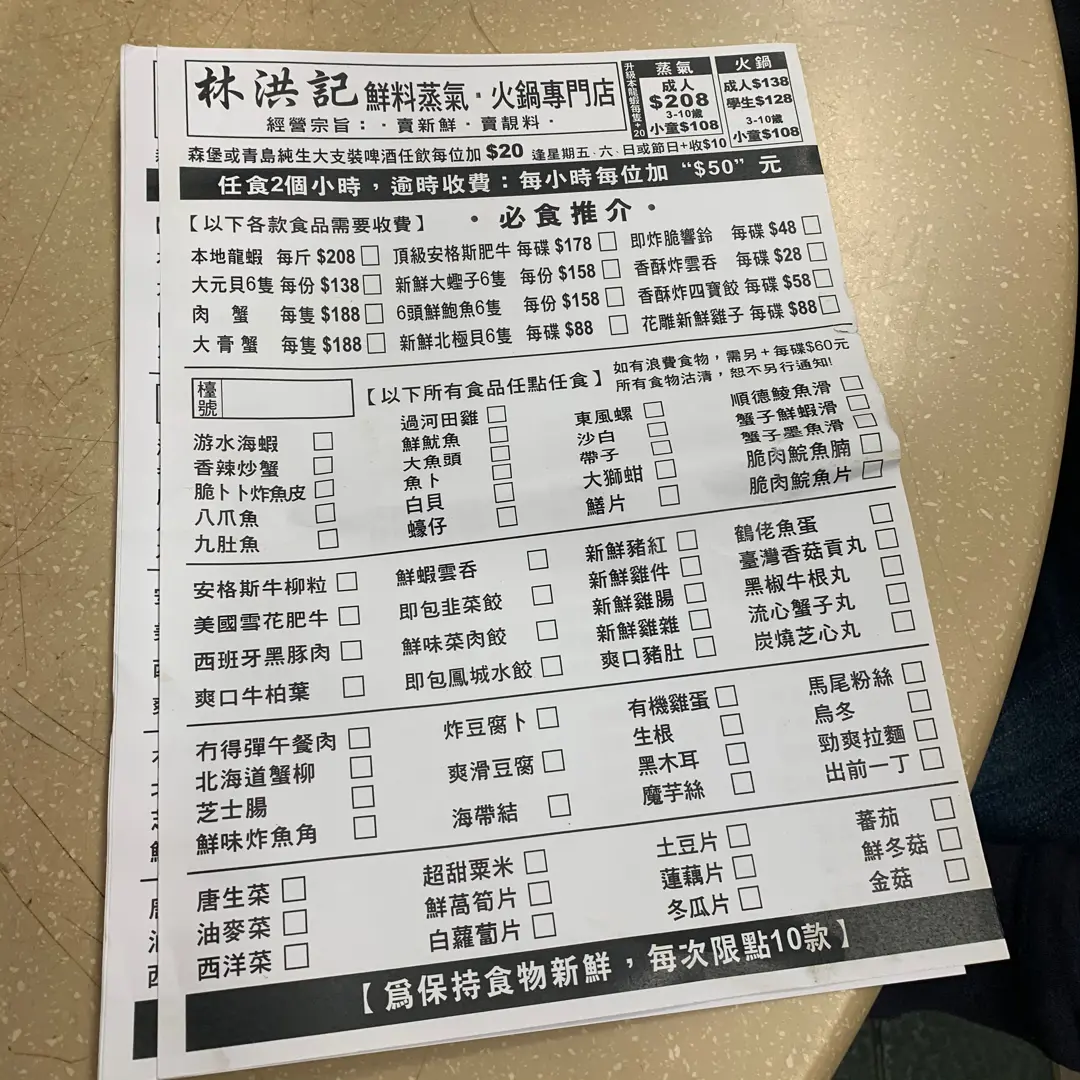 林洪記 鮮料蒸氣·火鍋專門店
經營宗旨：·賣新鮮·賣靚料·
升級本龍蝦每隻+20
蒸氣
成人
$208
3-10歲
小童$108
火鍋
成人$138
學生$128
3-10歲
小童$108
森堡或青島純生大支裝啤酒任飲每位加 $20 逢星期五、六、日或節日+收$10
任食2個小時，逾時收費：每小時每位加 “$50” 元
【以下各款食品需要收費】 ·必食推介·
本地龍蝦 每斤 $208 □ 頂級安格斯肥牛 每碟 $178 □ 即炸脆響鈴 每碟 $48 □
大元貝6隻 每份 $138 □ 新鮮大蟶子6隻 每份 $158 □ 香酥炸雲吞 每碟 $28 □
肉蟹 每隻 $188 □ 6頭鮮鮑魚6隻 每份 $158 □ 香酥炸四寶餃 每碟 $58 □
大膏蟹 每隻 $188 □ 新鮮北極貝6隻 每碟 $88 □ 花雕新鮮雞子 每碟 $88 □
檯號
【以下所有食品任點任食】
如有浪費食物，需另+每碟$60元
所有食物沽清，恕不另行通知!
游水海蝦 □
香辣炒蟹 □
脆卜卜炸魚皮 □
八爪魚 □
九肚魚 □
過河田雞 □
鮮魷魚 □
大魚頭 □
魚卜 □
白貝 □
蠔仔 □
東風螺 □
沙白 □
帶子 □
大獅蚶 □
鱔片 □
順德鯪魚滑 □
蟹子鮮蝦滑 □
蟹子墨魚滑 □
脆肉鯇魚腩 □
脆肉鯇魚片 □
安格斯牛柳粒 □
美國雪花肥牛 □
西班牙黑豚肉 □
爽口牛柏葉 □
鮮蝦雲吞 □
即包韭菜餃 □
鮮味菜肉餃 □
即包鳳城水餃 □
新鮮豬紅 □
新鮮雞件 □
新鮮雞腸 □
新鮮雞雜 □
爽口豬肚 □
鶴佬魚蛋 □
臺灣香菇貢丸 □
黑椒牛根丸 □
流心蟹子丸 □
炭燒芝心丸 □
冇得彈午餐肉 □
北海道蟹柳 □
芝士腸 □
鮮味炸魚角 □
炸豆腐卜 □
爽滑豆腐 □
海帶結 □
有機雞蛋 □
生根 □
黑木耳 □
魔芋絲 □
馬尾粉絲 □
烏冬 □
勁爽拉麵 □
出前一丁 □
唐生菜 □
油麥菜 □
西洋菜 □
超甜粟米 □
鮮萵筍片 □
白蘿蔔片 □
土豆片 □
蓮藕片 □
冬瓜片 □
蕃茄 □
鮮冬菇 □
金菇 □
【爲保持食物新鮮，每次限點10款】